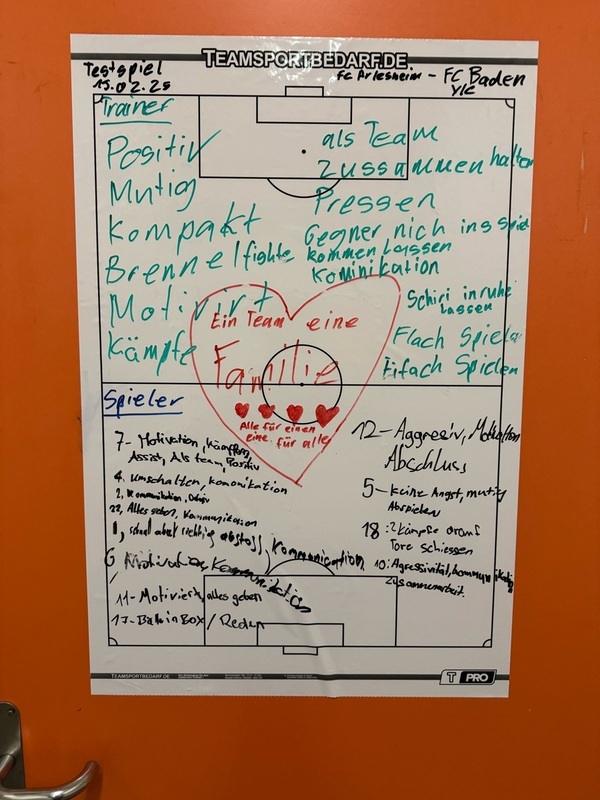 TEAMSPORTBEDARF.DE
Testspiel
15.02.25
FC Arlesheim - FC Baden
Y/C
Trainer
Positiv
Mutig
Kompakt
Brennelfighte
Motivirt
Kämpfe
als Team
Zussammen halten
Pressen
Gegner nich ins spiel
kommen lassen
Kominikation
Schiri in ruhe
lassen
Flach Spiele
Eifach Spielen
Ein Team eine
Familie
Alle für einen
eine für alle
Spieler
7- Motivation, kämpfen,
Assist, Als team, Positiv
4. Umschalten, komonikation
2. Kommunikation,
22, Alles geben, Kommunikation
1, schnell aber richtig abstoss, kommunication
6 Motivation, Kommunikation
11- Motiviert, alles geben
17- Ball in Box / Reden
12- Aggresiv, Motivation
Abschluss
5- keine Angst, mutig
Abspielen
18: 2kämpfe
Tore schiessen
10: Agressivität, kommunikation
zusammenarbeit.
TEAMSPORTBEDARF.DE
T PRO